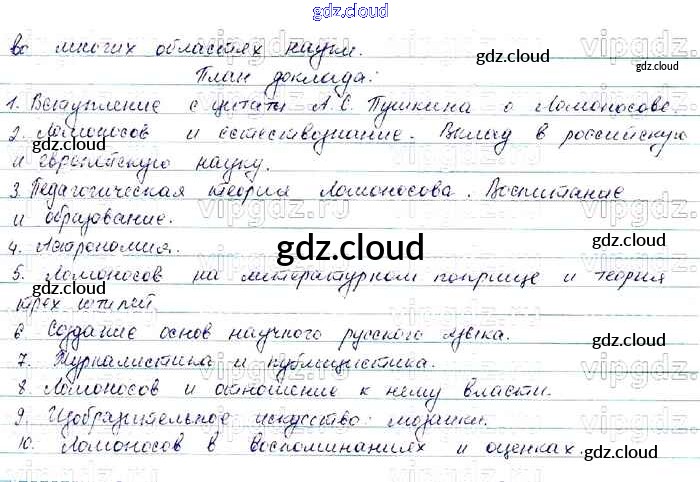 gdz.cloud
во многих областях науки.
План доклада:
1. Вступление с цитаты А.С. Пушкина о Ломоносове.
2. Ломоносов и естествознание. Вклад в российскую
и европейскую науку.
3. Педагогическая теория Ломоносова. Воспитание
и образование.
4. Астрономия.
5. Ломоносов на литературном поприще и теория
трёх штилей
6 Создание основ научного русского языка.
7. Журналистика и публицистика.
8. Ломоносов и отношение к нему власти.
9. Изобразительное искусство: мозаики.
10. Ломоносов в воспоминаниях и оценках.